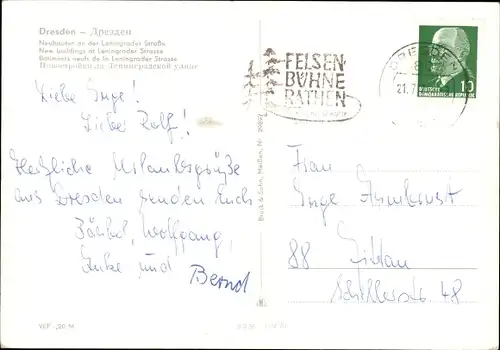 Dresden – Дрезден
Neubauten an der Leningrader Straße
New buildings at Leningrader Strasse
Bâtiments neufs de la Leningrader Strasse
Новостройки на Ленинградской улице
Liebe Inge!
Lieber Rolf!
Herzliche Urlaubsgrüße
aus Dresden senden Euch
Bärbel, Wolfgang,
Anke und Bernd
VEP -,20 M
Brück & Sohn, Meißen, Nr.
FELSEN
BÜHNE
RATHEN
DRESDEN
21.7.
10
DEUTSCHE
DEMOKRATISCHE REPUBLIK
Frau
Inge
88 Zittau
Schillerstr. 48